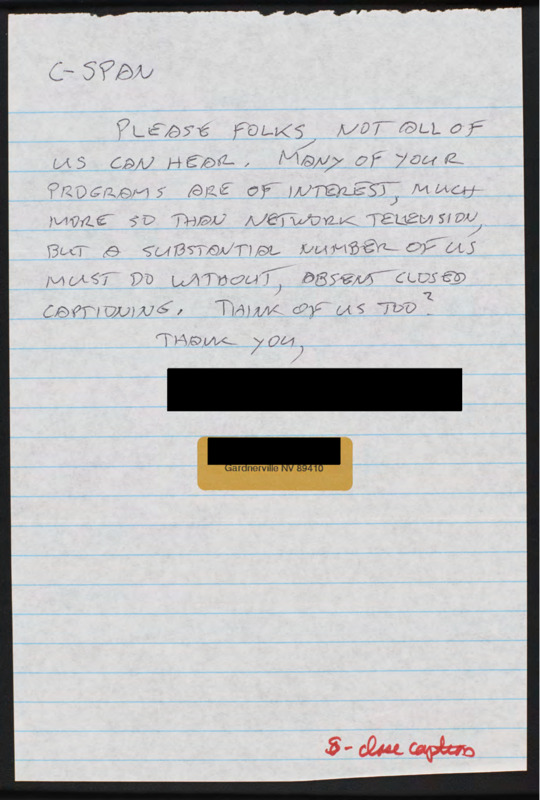 C-SPAN
PLEASE FOLKS, NOT ALL OF
US CAN HEAR. MANY OF YOUR
PROGRAMS ARE OF INTEREST, MUCH
MORE SO THAN NETWORK TELEVISION,
BUT A SUBSTANTIAL NUMBER OF US
MUST DO WITHOUT, ABSENT CLOSED
CAPTIONING. THINK OF US TOO?
THANK YOU,
Gardnerville NV 89410
- close captions